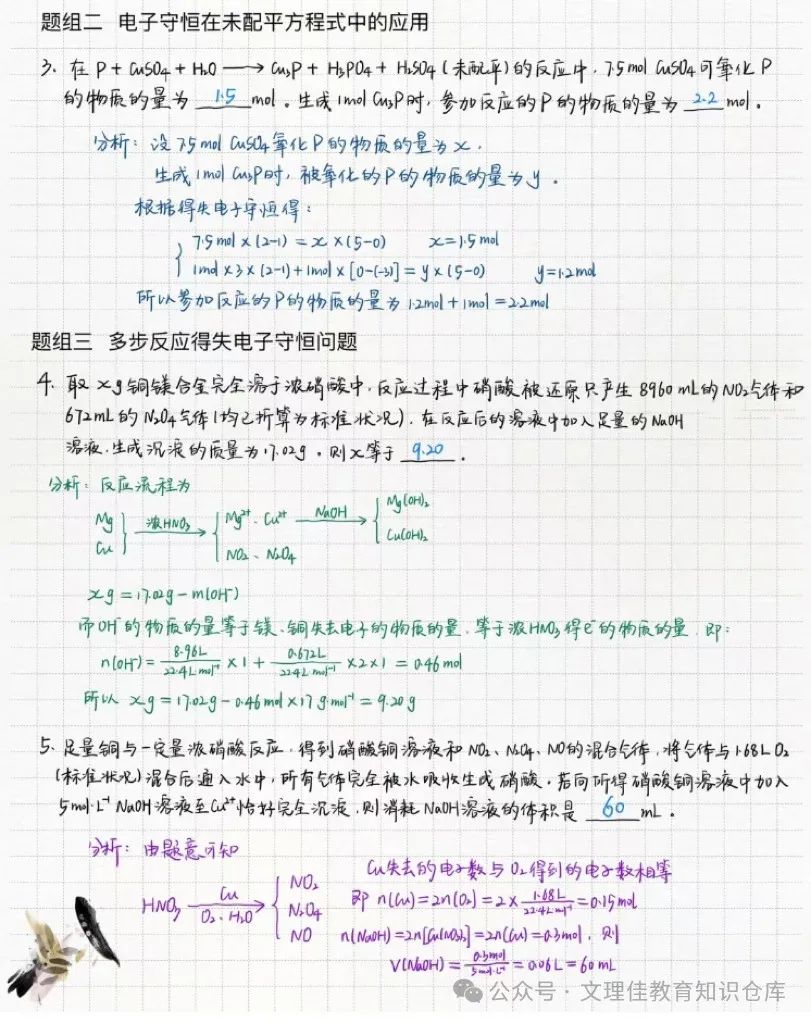 题组二 电子守恒在未配平方程式中的应用
3. 在 P + CuSO₄ + H₂O ⟶ Cu₃P + H₃PO₄ + H₂SO₄ (未配平) 的反应中, 7.5 mol CuSO₄ 可氧化 P
的物质的量为 1.5 mol。生成 1mol Cu₃P 时, 参加反应的 P 的物质的量为 2.2 mol。
分析: 设 7.5 mol CuSO₄ 氧化 P 的物质的量为 x,
生成 1mol Cu₃P 时, 被氧化的 P 的物质的量为 y。
根据得失电子守恒得:
7.5 mol × (2-1) = x × (5-0) x = 1.5 mol
1mol × 3 × (2-1) + 1mol × [0-(-3)] = y × (5-0) y = 1.2 mol
所以参加反应的 P 的物质的量为 1.2mol + 1mol = 2.2mol
题组三 多步反应得失电子守恒问题
4. 取 x g 铜镁合金完全溶于浓硝酸中, 反应过程中硝酸被还原只产生 8960 mL 的 NO₂ 气体和
672 mL 的 N₂O₄ 气体 (均已折算为标准状况), 在反应后的溶液中加入足量的 NaOH
溶液, 生成沉淀的质量为 17.02g。则 x 等于 9.20。
分析: 反应流程为
Mg Cu } 浓HNO₃ → { Mg²⁺、Cu²⁺ NaOH → { Mg(OH)₂ Cu(OH)₂
NO₂、N₂O₄
x g = 17.02g - m(OH⁻)
而 OH⁻ 的物质的量等于镁、铜失去电子的物质的量, 等于浓HNO₃ 得 e⁻ 的物质的量, 即:
n(OH⁻) = 8.96L / 22.4L·mol⁻¹ × 1 + 0.672L / 22.4L·mol⁻¹ × 2 × 1 = 0.46 mol
所以 x g = 17.02g - 0.46 mol × 17 g·mol⁻¹ = 9.20 g
5. 足量铜与一定量浓硝酸反应, 得到硝酸铜溶液和 NO₂、N₂O₄、NO 的混合气体, 将气体与 1.68L O₂
(标准状况) 混合后通入水中, 所有气体完全被水吸收生成硝酸。若向所得硝酸铜溶液中加入
5 mol·L⁻¹ NaOH 溶液至 Cu²⁺ 恰好完全沉淀, 则消耗 NaOH 溶液的体积是 60 mL。
分析: 由题意可知
HNO₃ Cu → O₂、H₂O { NO₂ N₂O₄ NO
Cu 失去的电子数与 O₂ 得到的电子数相等
即 n(Cu) = 2n(O₂) = 2 × 1.68L / 22.4L·mol⁻¹ = 0.15 mol
n(NaOH) = 2n[Cu(NO₃)₂] = 2n(Cu) = 0.3mol, 则
V(NaOH) = 0.3mol / 5mol·L⁻¹ = 0.06L = 60 mL
公众号 · 文理佳教育知识仓库